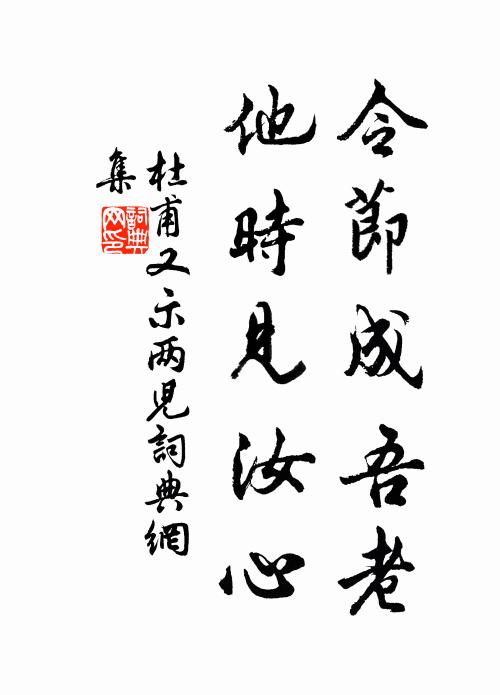 令節成吾老
他時見汝心
杜甫又示两兒詞典網
集
詞典
网印